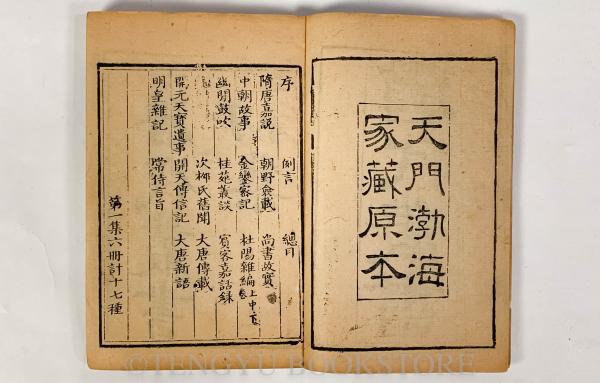 天門渤海
家藏原本
序 例言 總目
隋唐嘉説 朝野僉載 尚書故實
中朝故事 金鑾密記 杜陽雜編上中下卷
幽閒鼓吹 桂苑叢談 賓客嘉話錄
次柳氏舊聞 大唐傳載
開元天寶遺事 開天傳信記 大唐新語
明皇雜記 常侍言旨
第一集六冊計十七種
©TENGYU BOOKSTORE